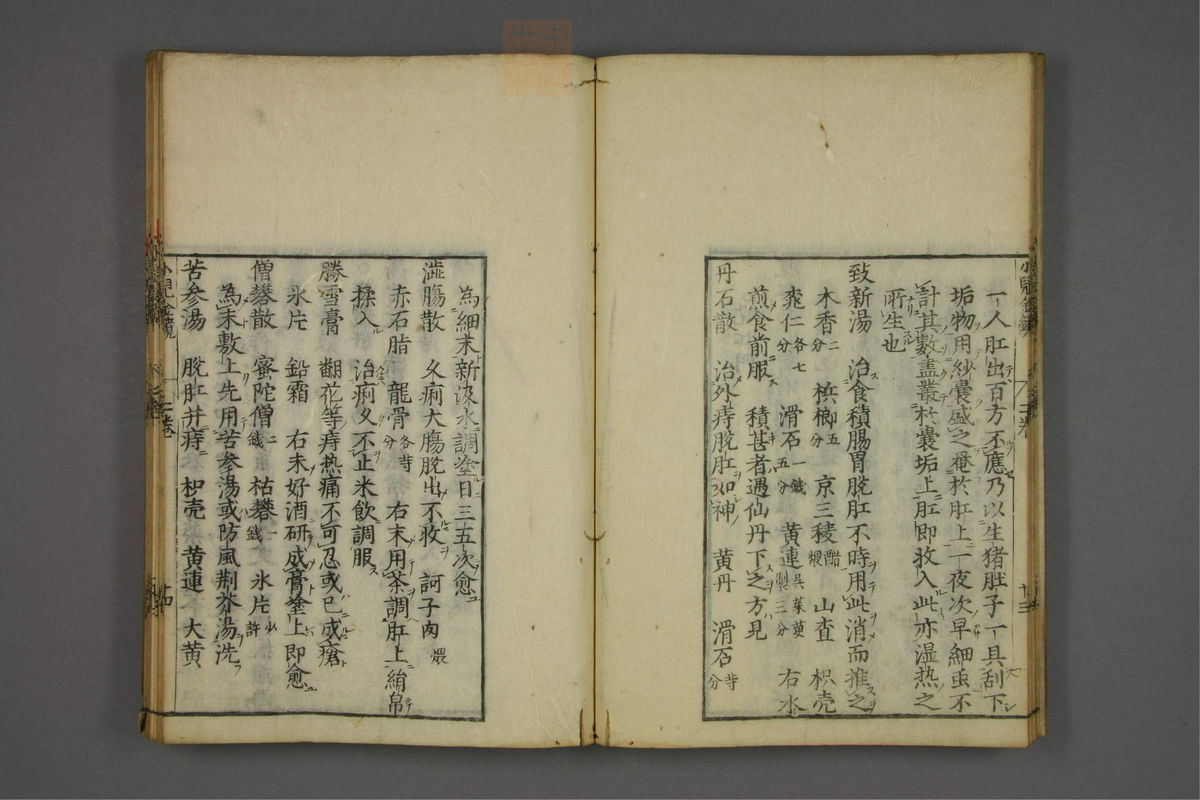 一人肛出百方不應乃以生猪肚子一具刮下
垢物用紗囊盛之罨於肛上一夜次早細虫不
計其數盡叢於囊垢上肛即收入此亦湿热之
所生也
致新湯　治食積腸胃脱肛不時用此消而推之
木香二分　梹榔五分　京三稜醋煨　山查　枳壳
桃仁各七分　滑石一錢五分　黄連呉茱萸製三分　右水
煎食前服　積甚者遇仙丹下之方見
丹石散　治外痔脱肛如神　黄丹　滑石等分
為細末新汲水調塗日三五次愈
澁腸散　久痢大腸脱出不收　訶子肉煨
赤石脂　龍骨各等分　右末用茶調肛上絹帛
揉入　治痢久不止米飲調服
勝雪膏　翻花等痔热痛不可忍或已成瘡
氷片　鉛霜　右末好酒研成膏塗上即愈
僧礬散　蜜陀僧二錢　枯礬一錢　氷片少許
為末敷上先用苦参湯或防風荆芥湯洗
苦参湯　脱肛并痔　枳壳　黄連　大黄